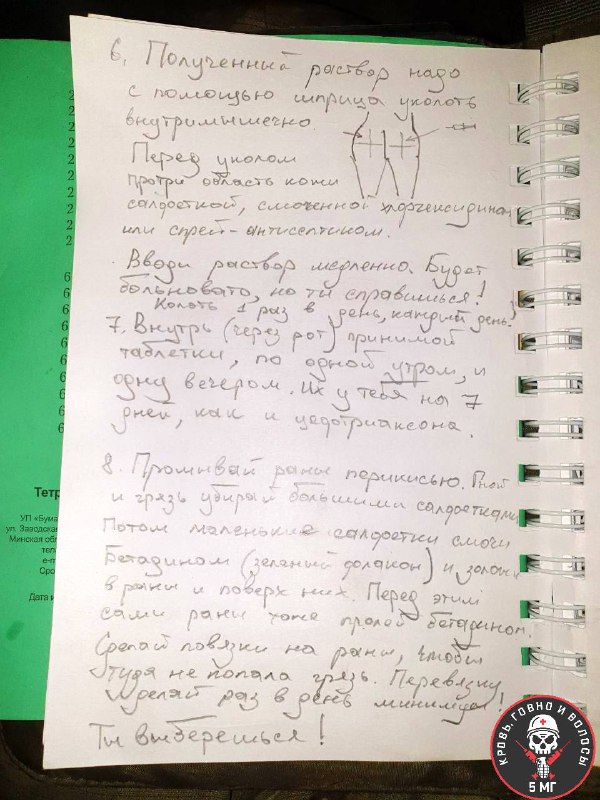 6. Полученный раствор надо
с помощью шприца уколоть
внутримышечно
Перед уколом
протри область кожи
салфеткой, смоченной хлоргексидином
или спрей-антисептиком.
Вводи раствор медленно. Будет
больновато, но ты справишься!
Колоть 1 раз в день, каждый день.
7. Внутрь (через рот) принимай
таблетки, по одной утром, и
одну вечером. Их у тебя на 7
дней, как и цефтриаксона.
8. Промывай раны перикисью. Гной
и грязь убирай большими салфетками
Потом маленькие салфетки смочи
Бетадином (зеленый флакон) и
в раны и поверх них. Перед этим
сами раны тоже пролей бетадином.
Сделай повязки на раны, чтобы
туда не попала грязь. Перевязку
делай раз в день минимум!
Ты выберешься!
2
2
2
2
2
2
2
2
2
6
6
6
6
6
6
6
6
6
Тетр
УП «Бума
ул. Заводская
Минская обл
тел
e-m
Сро
Дата и
КРОВЬ, ГОВНО И ВОЛОСЫ
5 МГ